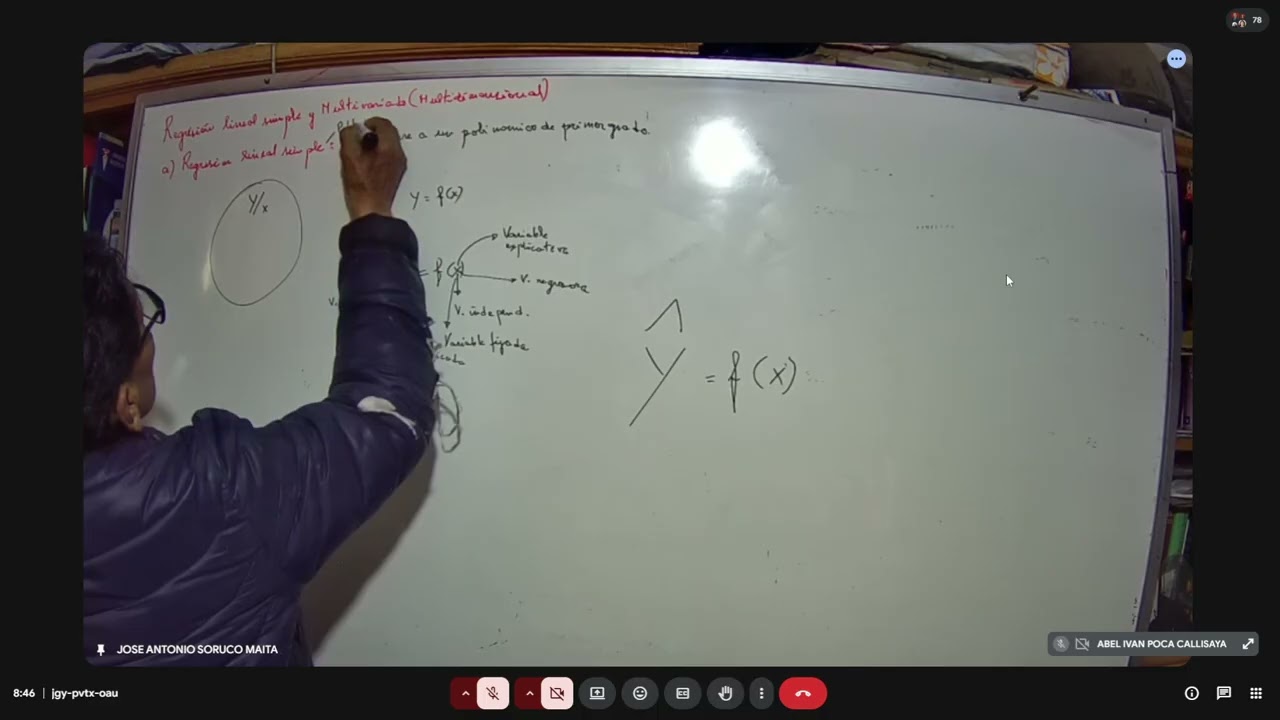 78
Regresión lineal simple y Multivariada (Multidimensional)
a) Regresión lineal simple = a un polinomico de primer grado.
Y/x
Y = f(x)
= f(x)
Variable
explicativa
V. regresora
V. independ.
Variable fijada
V.
Y = f(x)
JOSE ANTONIO SORUCO MAITA
ABEL IVAN POCA CALLISAYA
8:46 | jgy-pvtx-oau